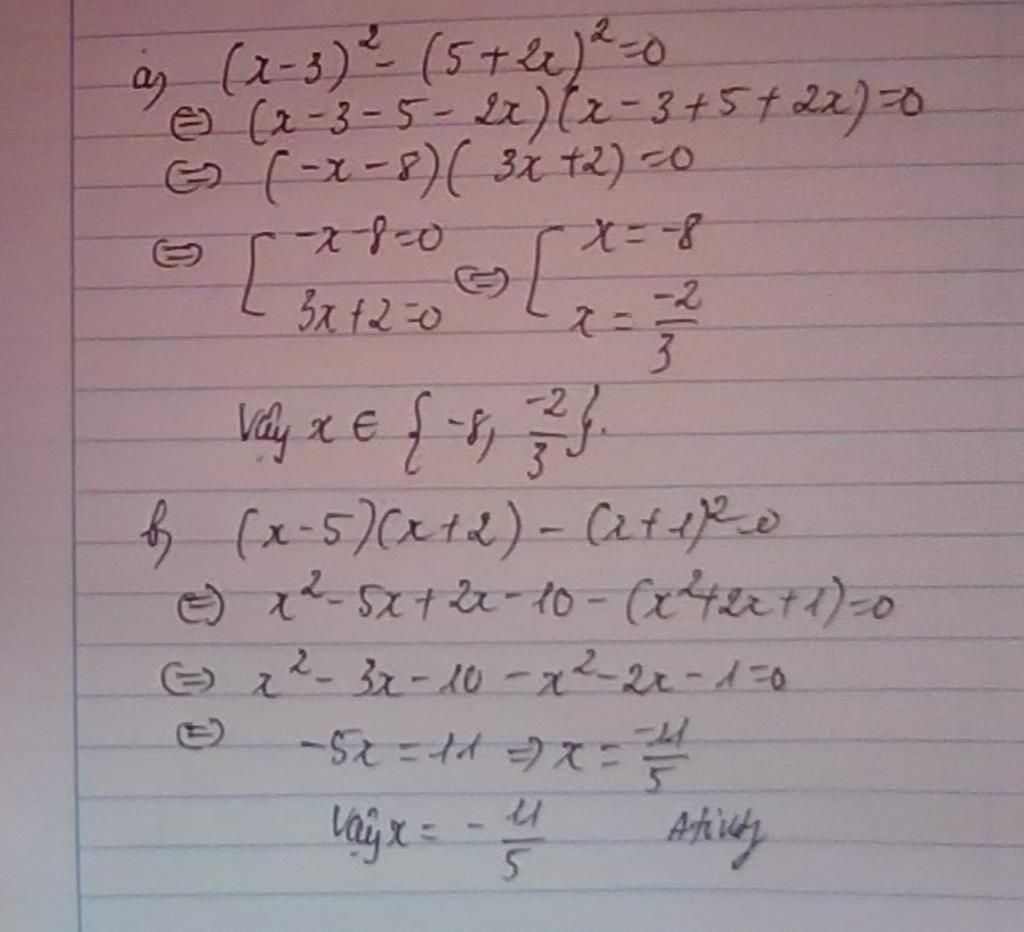 a) (x-3)² - (5+2x)² = 0
⇔ (x-3-5-2x)(x-3+5+2x) = 0
⇔ (-x-8)(3x+2) = 0
⇔ [ -x-8=0 ⇔ [ x = -8
3x+2=0 x = -2/3
Vậy x ∈ { -8, -2/3 }.
b) (x-5)(x+2) - (x+1)² = 0
⇔ x² - 5x + 2x - 10 - (x²+2x+1) = 0
⇔ x² - 3x - 10 - x² - 2x - 1 = 0
⇔ -5x = 11 ⇒ x = -11/5
Vậy x = - 11/5